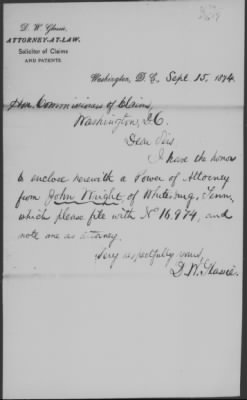 D. W. Glassie,
ATTORNEY-AT-LAW.
Solicitor of Claims
AND PATENTS.
Washington, D. C., Sept 15, 1874.
Hon. Commissioners of Claims,
Washington, D.C.
Dear Sirs
I have the honor
to enclose herewith a Power of Attorney
from John Wright of Whitesburg, Tenn,
which please file with No 16.974, and
note me as attorney.
Very respectfully yours,
D. W. Glassie.